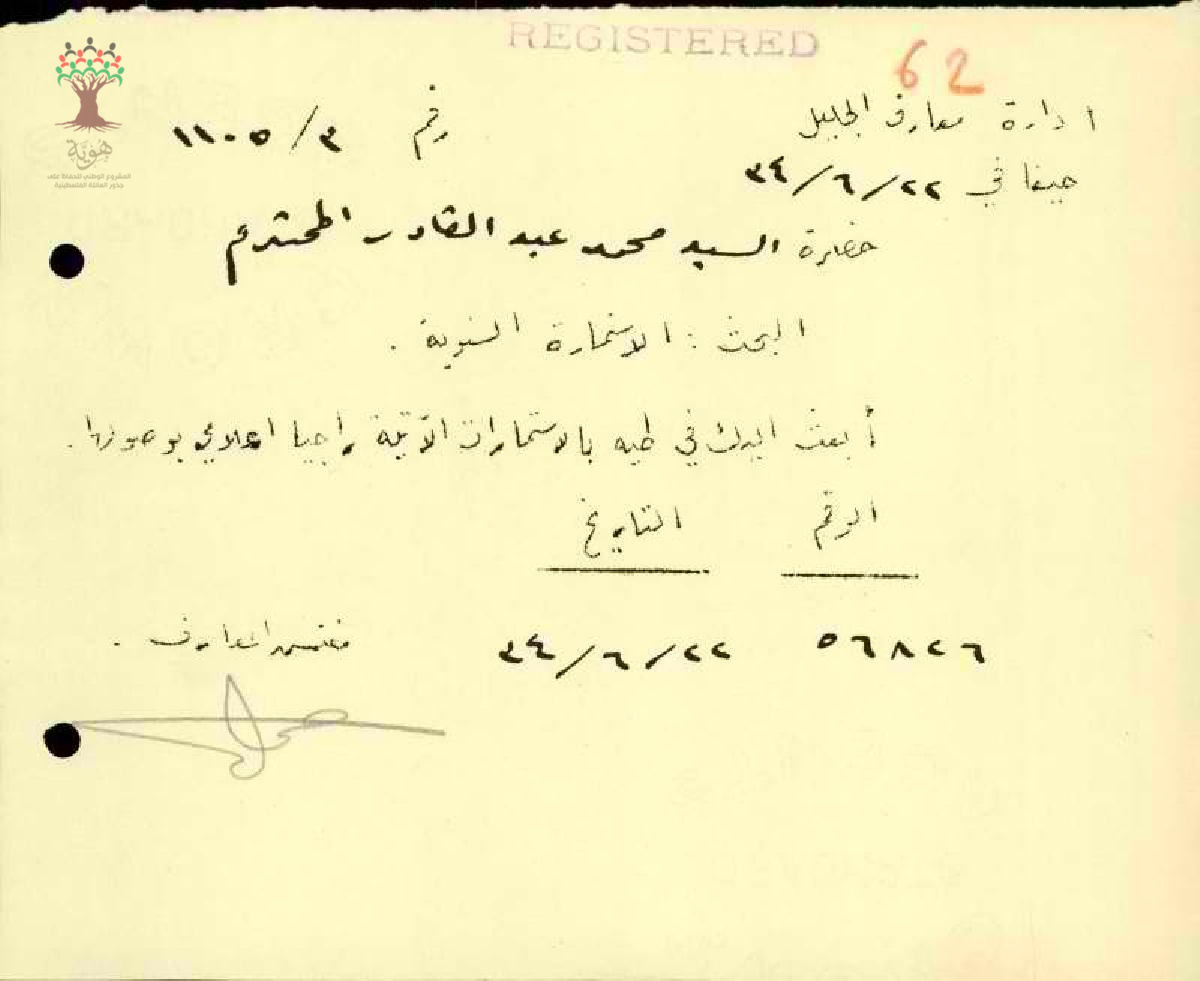 REGISTERED
62
ادارة معارف الجليل
رقم ٣/١١٠٥
حيفا في ٢٢/٦/٣٤
حضرة السيد محمد عبد القادر المحترم
البحث : الاستمارة السنوية .
أبعث اليك في طيه بالاستمارات الآتية راجيا اعلامي بوصولها .
الرقم التاريخ
٥٦٨٢٦ ٢٢/٦/٣٤
مفتش المعارف .
هوية
المشروع الوطني للحفاظ على
جذور العائلة الفلسطينية